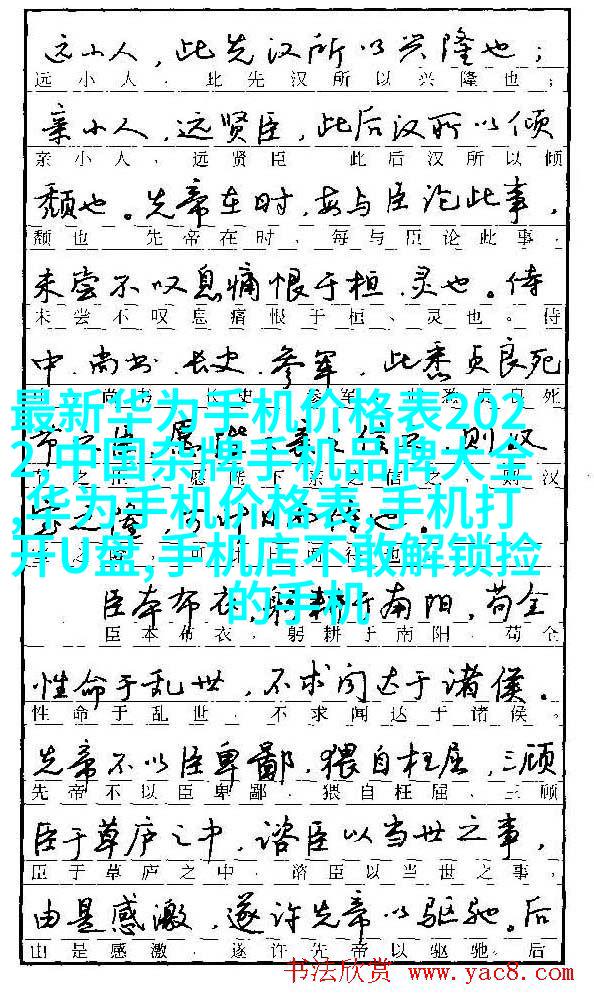 远小人，此先汉所以兴隆也；
远小人，此先汉所以兴隆也；
亲小人，远贤臣，此后汉所以倾
亲小人，远贤臣 此后汉所以倾
颓也。先帝在时，每与臣论此事，
颓也 先帝在时，每与臣论此事，
未尝不叹息痛恨于桓、灵也。侍
未尝不叹息痛恨于桓、灵也。侍
中、尚书、长史、参军，此悉贞良死
最新华为手机价格表202
2,中国杂牌手机品牌大全
,华为手机价格表,手机打
开U盘,手机店不敢解锁捡
的手机
臣本布衣，躬耕于南阳，苟全
臣本布衣，躬耕于南阳，苟全
性命于乱世，不求闻达于诸侯。
性命于乱世，不求闻达于诸侯。
先帝不以臣卑鄙，猥自枉屈，三顾
先帝不以臣卑鄙，猥自枉屈，三顾
臣于草庐之中，谘臣以当世之事，
臣于草庐之中，谘臣以当世之事，
由是感激，遂许先帝以驱驰。后
由是感激，遂许先帝以驱驰。后
书法欣赏 www.yac8.com